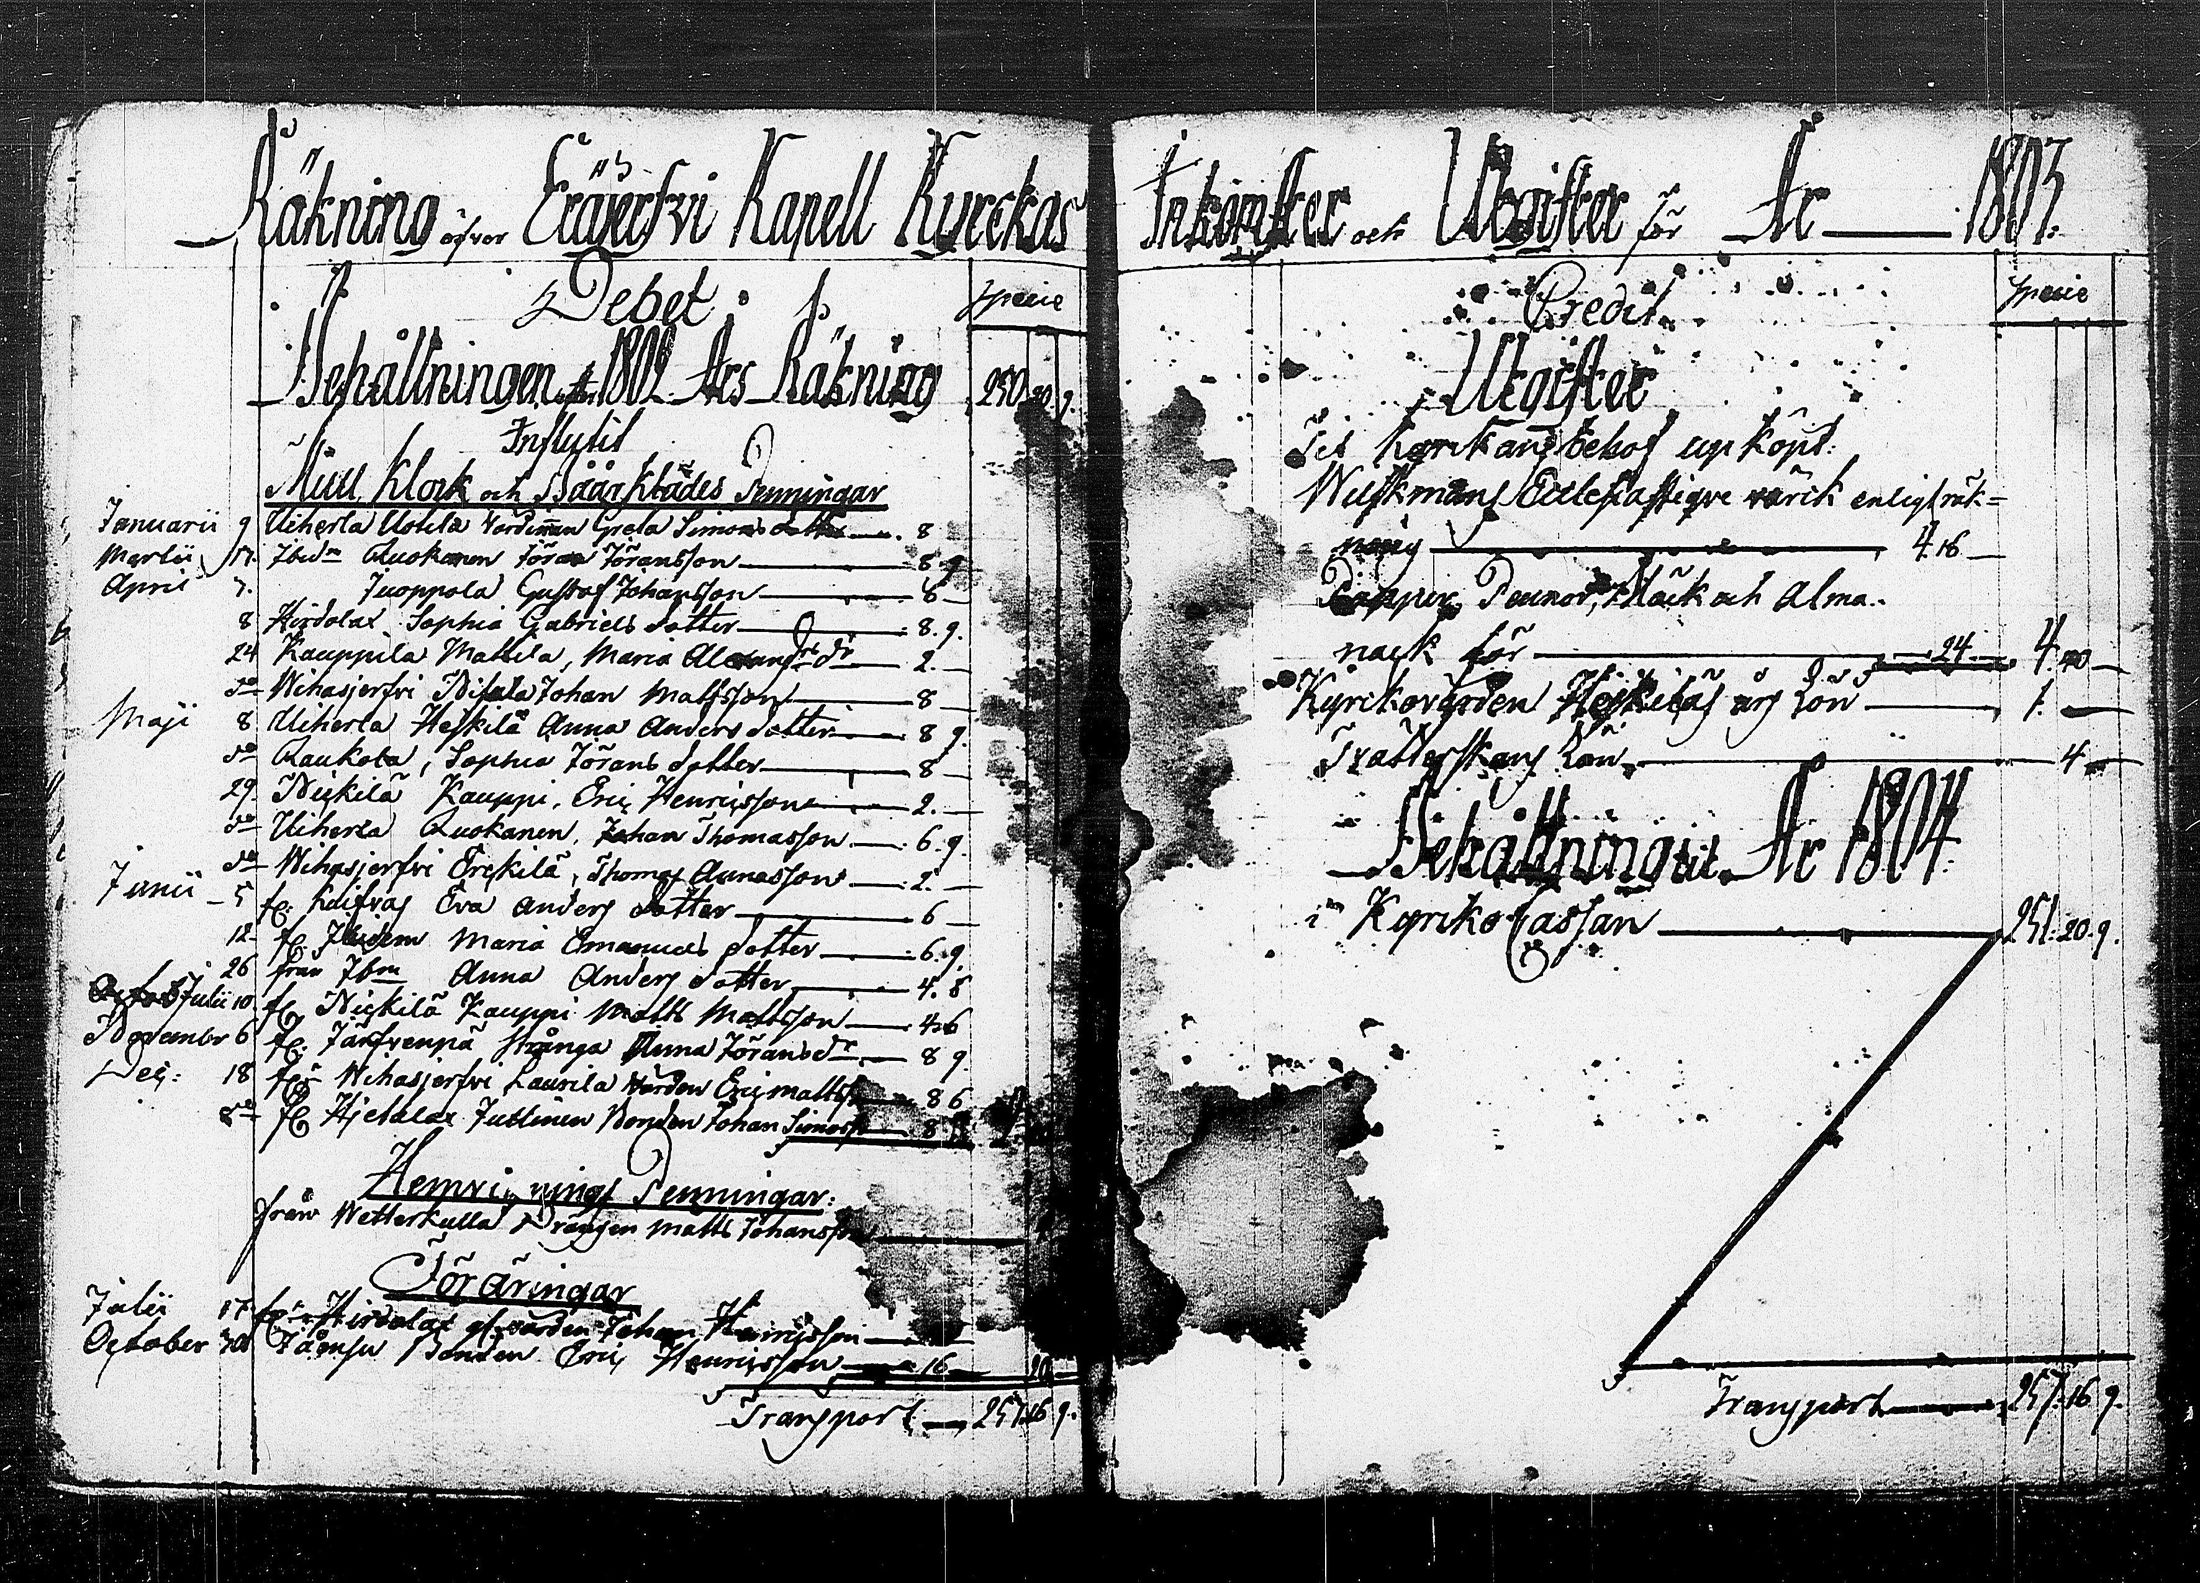 Räkning öfver Eräjerfvi Kapell Kyrckas
Debet
Specie
Behållningen 1802 Års Räkning 250. 20. 9.
Influtit
Mull Klock och Båår Klädes Penningar
Januarii 9 Uiherla Uotila Värdinnan Greta Simons dotter 8
Martii 17. Ibdm Ruokanen Jöran Jöransson 8. 9
April 7. Juoppola Gustaf Johansson 6
8 Hirdolax Sophia Gabriels dotter 8. 9.
24 Kauppila Mattila, Maria Alexandrs dr 2.
do Wihasjerfvi Johan Mattsson 8
Maji 8 Uiherla Heskilä Anna Anders dotter 8 9.
do Raukola, Sophia Jörans dotter 8
29. Nickilä Kauppi, Eric Henricsson 2.
do Uiherla Ruokanen, Johan Thomasson 6. 9.
do Wihasjerfvi Erckilä, Thomas Aunasson 2.
Junii 5 fr. Eva Anders dotter 6
12 fr. Ibidem Maria Emanuels dotter 6. 9.
26 från Ibm Anna Anders dotter 4. 8
Julii 10 fr. Nickilä Kauppi Matts Mattsson 4. 6
November 6 fr. Järfvenpä Anna Jörans dr 8 9.
Dec: 18 från Wihasjerfvi Laurila Värden Eric Mattss 8 6
do fr Hjetalax Juttinen Bonden Johan Simonss 8
Penningar:
från Wetterkulla Drängen Matts Johansson
Föräringar
Julii 17 från Hirdolax Värden Johan Henricsson
October 30 Jämsu Bonden Eric Henricsson 16 20
Transport 257. 16 9.
Inkomster och Utgifter för År 1803.
Credit
Specie
Utgifter
Til kyrkans behof upköpt:
Wustmans Ecclesiastique värck enligt räk=
ning 4. 16
Papper, Pennor, Bläck och Alma-
nack för 24 4. 40
Kyrkovärden Heskiläs års Lön 1.
Tratterskans Lön 4
Behållning til År 1804.
i Kyrko Cassan 251. 20. 9.
Transport 257. 16 9.